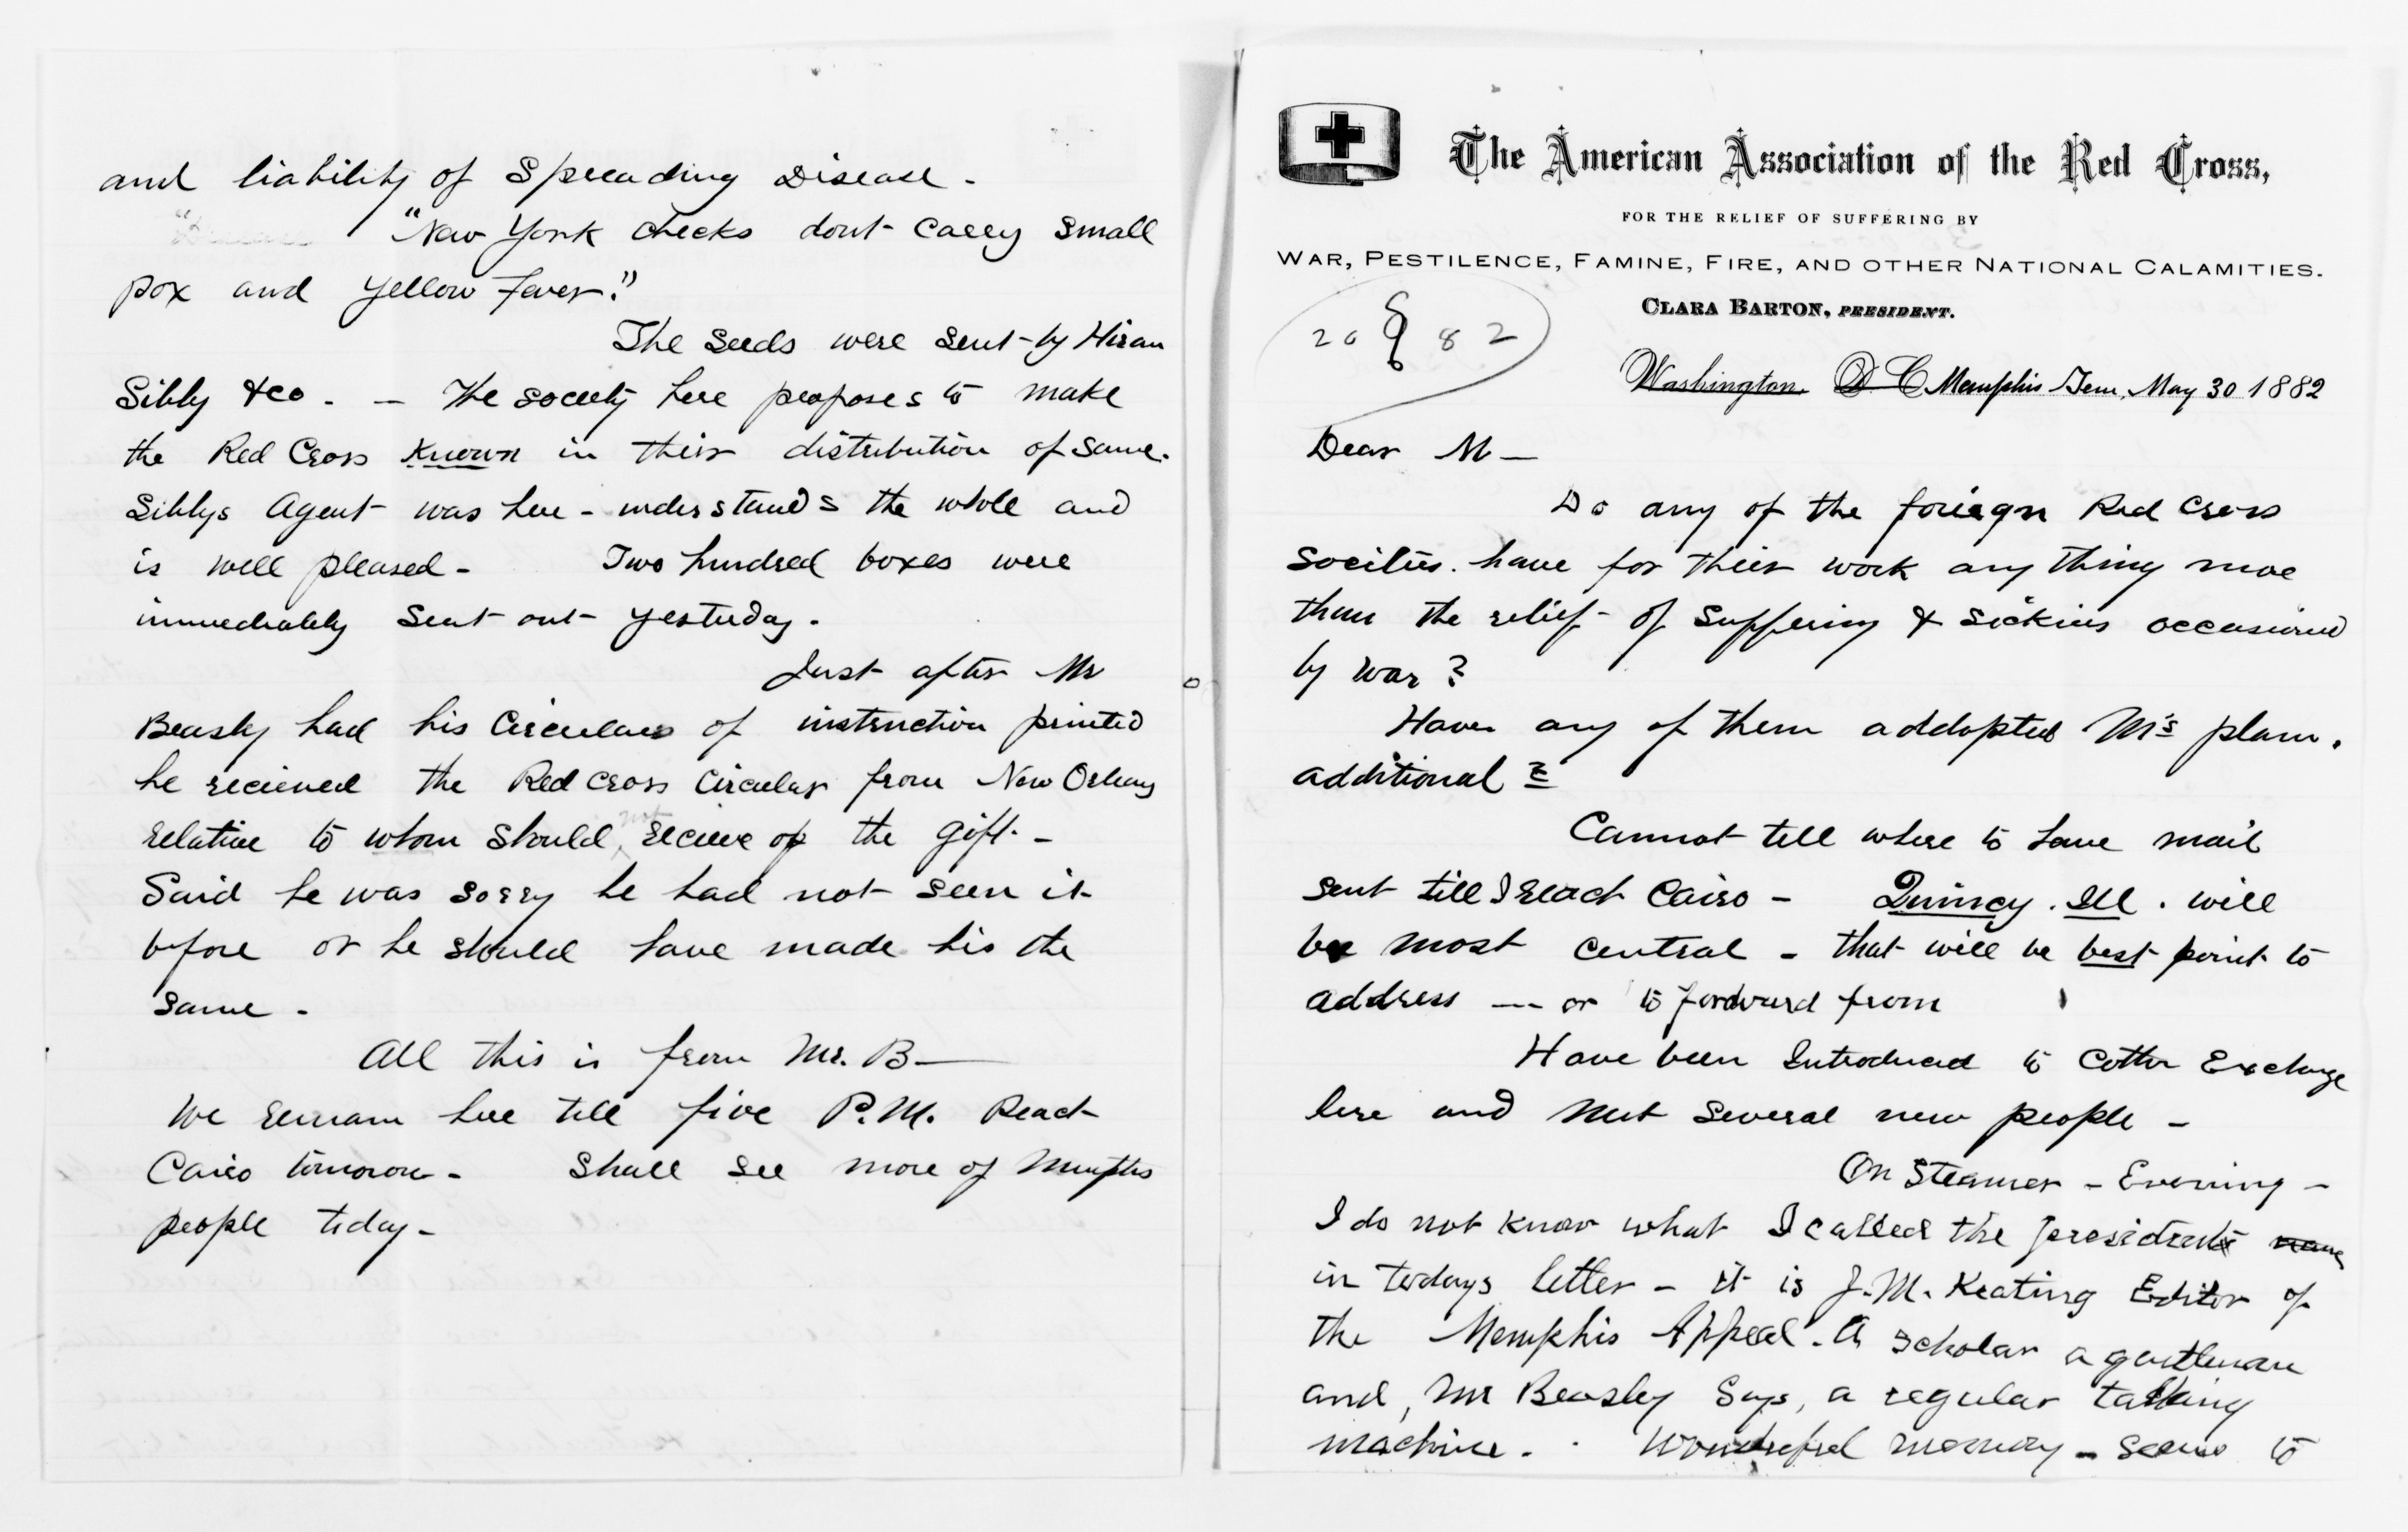 and liability of Spreading Disease -
"New York checks dont carry small
pox and yellow fever."
The seeds were sent by Hiram
Sibly & co. - The society here proposes to make
the Red Cross known in their distribution of same.
Siblys Agent was here - understands the whole and
is well pleased - Two hundred boxes were
immediately sent out yesterday.
Just after Mr
Beasly had his Circulars of instruction printed
he recieved the Red Cross Circular from New Orleans
relative to whom should not recieve of the gift. -
Said he was sorry he had not seen it
before or he should have made his the
same -
All this is from Mr. B—
We remain here till five P.M. Reach
Cairo tomorow - Shall see more of Memphis
people today -
The American Association of the Red Cross,
FOR THE RELIEF OF SUFFERING BY
WAR, PESTILENCE, FAMINE, FIRE, AND OTHER NATIONAL CALAMITIES.
CLARA BARTON, PRESIDENT.
82
Washington, D C Memphis Tenn, May 30 1882
Dear M—
Do any of the foriegn Red Cross
Socities. have for their work any thing more
than the relief of suffering & sickness occasioned
by war?
Have any of them addopted M's plan.
additional?
Cannot tell where to have mail
sent till I reach Cairo - Quincy. Ill. will
be most central - that will be best point to
address — or to forward from
Have been Introduced to Cotton Exchange
here and met several new people -
On Steamer - Evening -
I do not know what I called the president name
in todays letter - it is J.M. Keating Editor of
the Memphis Appeal. A scholar a gentleman
and, Mr Beasley says, a regular talking
machine. Wonderful memory - seems to